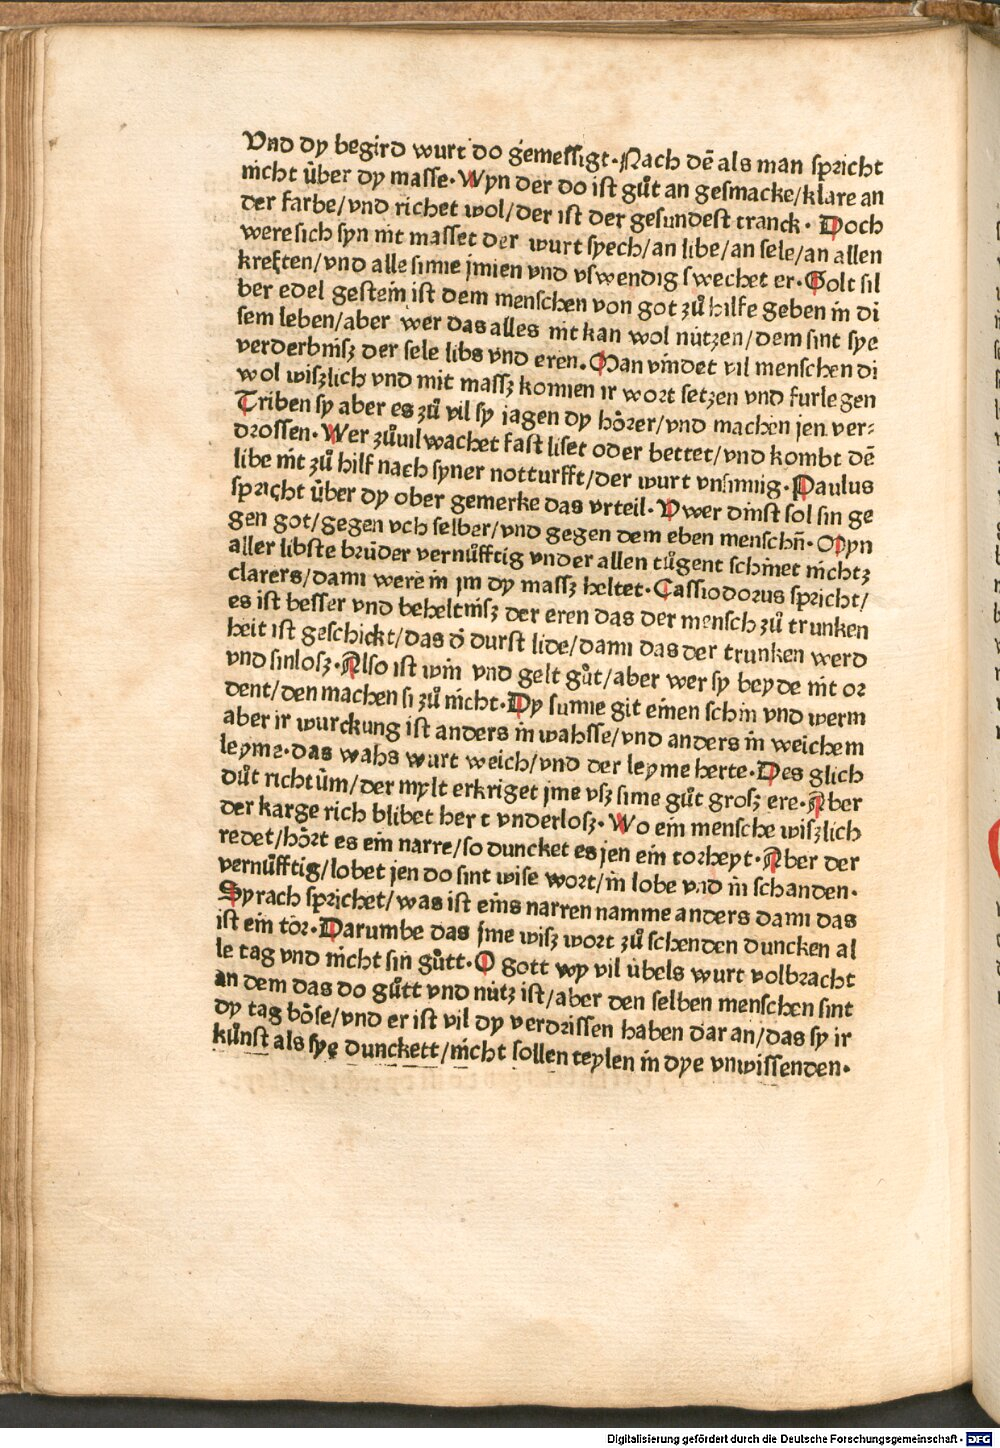 Vnd dy begird wurt do gemeſſigt·Nach dē als man ſpricht
nicht über dy maſſe·Wyn der do iſt gůt an geſmacke/klare an
der farbe/vnd richet wol/der iſt der geſundeſt tranck·Doch
were ſich ſyn nit maſſet der wurt ſyech/an libe/an ſele/an allen
kreften/vnd alle ſinne jnnen vnd vſwendig ſwechet er·Golt ſil
ber edel geſtein iſt dem menſchen von got zů hilfe geben in di
ſem leben/aber wer das alles nit kan wol nützen/dem ſint ſye
verderbniſz der ſele libs vnd eren·Man vindet vil menſchen di
wol wiſzlich vnd mit maſſz konnen ir wort ſetzen vnd furlegen
Triben ſy aber es zů vil ſy jagen dy hörer/vnd machen jen ver⸗
droſſen·Wer zůuil wachet faſt liſet oder bettet/vnd kombt dē
libe nit zů hilf nach ſyner notturfft/der wurt vnſinnig·Paulus
ſpricht über dy ober gemerke das vrteil·Vwer dinſt ſol ſin ge
gen got/gegen vch ſelber/vnd gegen dem eben menſchn̄·Myn
aller libſte brüder vernůfftig vnder allen tůgent ſchinet nichtz
clarers/dann were in jm dy maſſz heltet·Caſſiodorus ſpricht/
es iſt beſſer vnd beheltniſz der eren das der menſch zů trunken
heit iſt geſchickt/das d̄ durſt lide/dann das der trunken werd
vnd ſinloſz·Alſo iſt win vnd gelt gůt/aber wer ſy beyde nit or
dent/den machen ſi zů nicht·Dy ſunne git einen ſchin vnd werm
aber ir wurckung iſt anders in wahſſe/vnd anders in weichem
leyme·das wahs wurt weich/vnd der leyme herte·Des glich
důt richtům/der mylt erkriget jme vſz ſime gůt groſz ere·Aber
der karge rich blibet hert vnderloſz·Wo ein menſche wiſzlich
redet/hört es ein narre/ſo duncket es jen ein torheyt·Aber der
vernůfftig/lobet jen do ſint wiſe wort/in lobe vnd in ſchanden·
Syrach ſprichet/was iſt eins narren namme anders dann das
iſt ein tör·Darumbe das jme wiſz wort zů ſchenden duncken al
le tag vnd nicht ſin gůtt·O gott wy vil übels wurt volbracht
an dem das do gůtt vnd nütz iſt/aber den ſelben menſchen ſint
dy tag böſe/vnd er iſt vil dy verdriſſen haben dar an/das ſy ir
kůnſt als ſye dunckett/nicht ſollen teylen in dye vnwiſſenden·
Digitalisierung gefördert durch die Deutsche Forschungsgemeinschaft - DFG